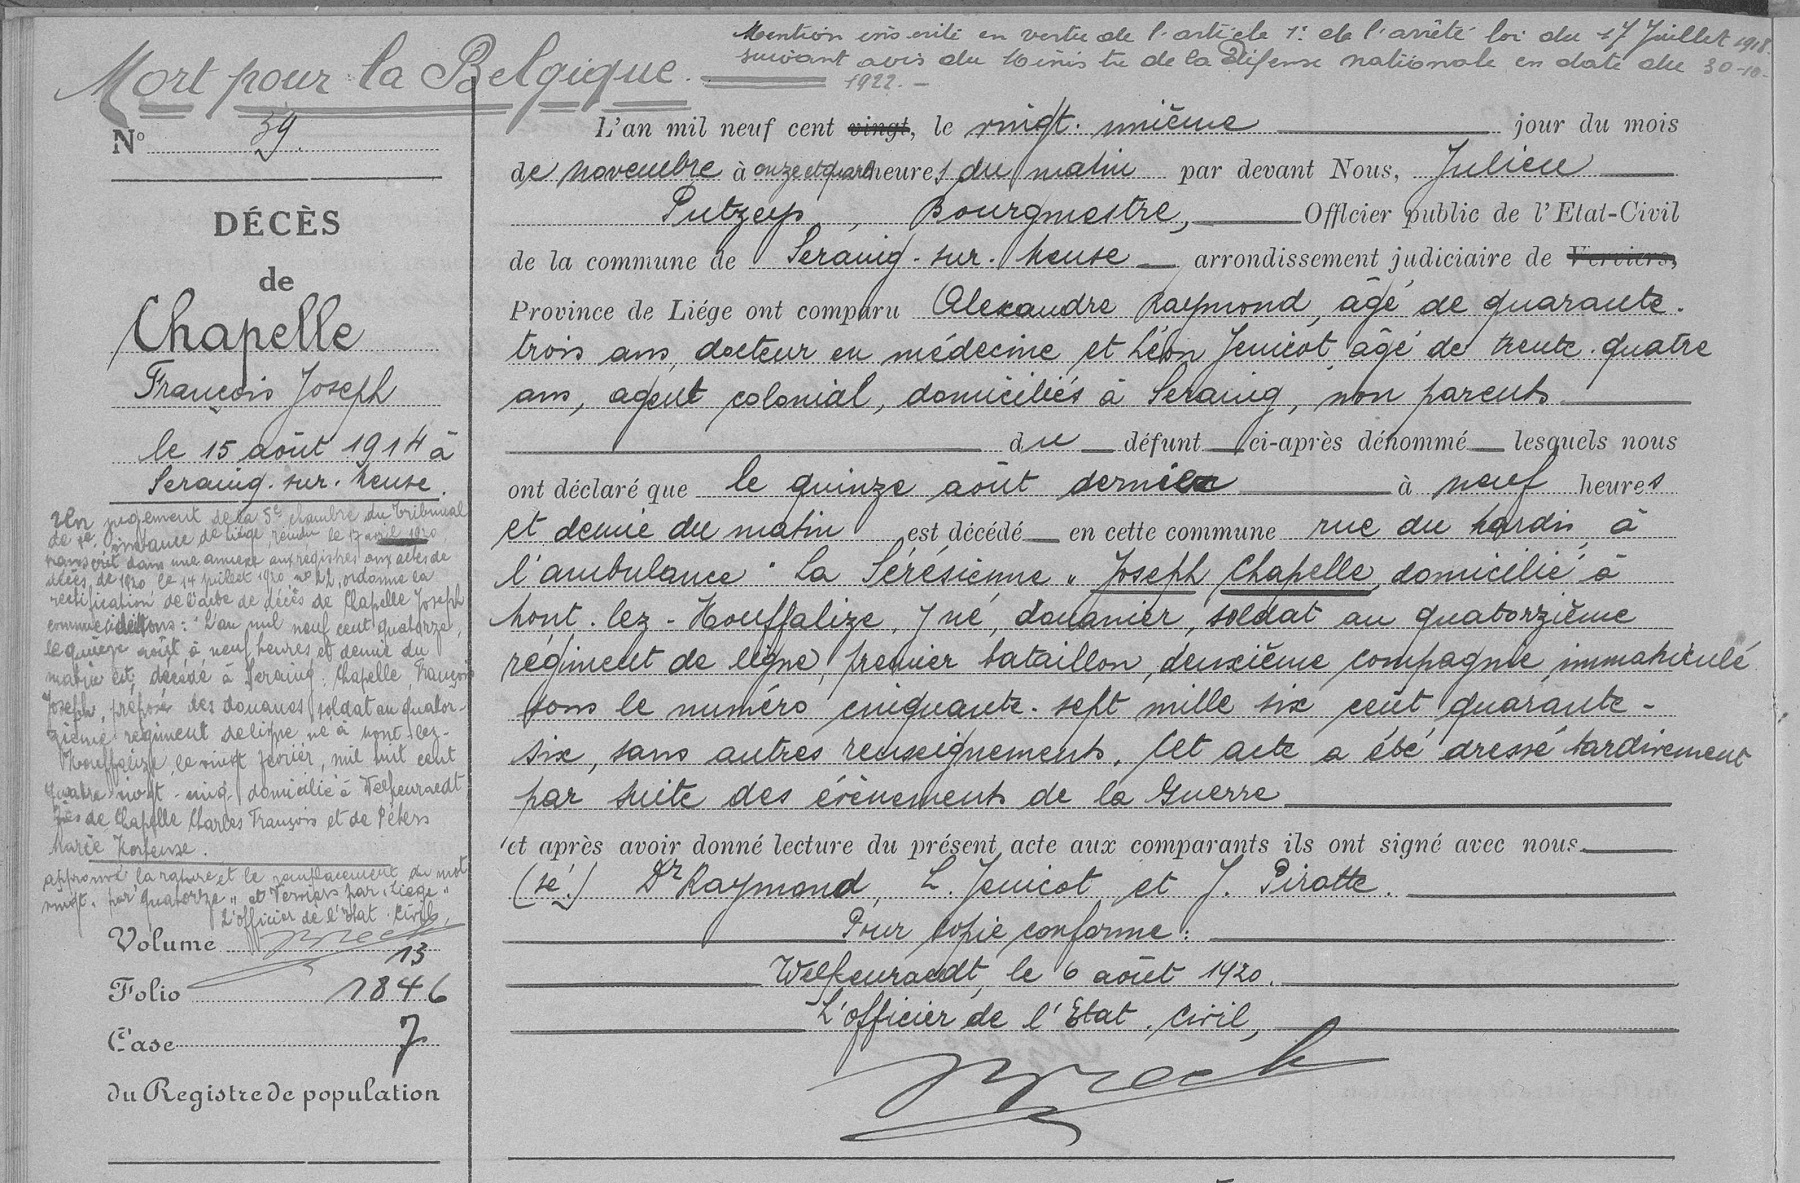 Mention inscrite en vertu de l'article 1er de l'arrêté loi du 17 Juillet 1918.
suivant avis du Ministre de la Défense nationale en date du 30-10-
1922. -
Mort pour la Belgique.
No 39.
DÉCÈS
de
Chapelle
François Joseph
le 15 août 1914 à
Seraing-sur-Meuse.
Un jugement de la 5e chambre du Tribunal
de 1e instance de Liège, rendu le 17 avril 1920,
transcrit dans une annexe aux registres aux actes de
décès de 1920 le 14 juillet 1920 no 22, ordonne la
rectification de l'acte de décès de Chapelle Joseph
comme : "L'an mil neuf cent quatorze,
le quinze août à neuf heures et demie du
matin est décédé à Seraing : Chapelle François
Joseph, préposé des douanes, soldat au quator-
zième régiment de ligne né à Mont-lez-
Houffalize, le vingt février, mil huit cent
quatre-vingt-cinq domicilié à Welkenraedt
fils de Chapelle Charles François et de Péters
Marie Hortense.
approuvé la rature et le remplacement du mot
"vingt" par "quatorze" et Verviers par "Liège"
L'officier de l'Etat-Civil,
Volume 13
Folio 1846
Case 7
du Registre de population
L'an mil neuf cent vingt, le vingt-unième jour du mois
de novembre à onze et quart heures du matin par devant Nous, Julien
Putzeys, Bourgmestre, Officier public de l'Etat-Civil
de la commune de Seraing-sur-Meuse arrondissement judiciaire de Verviers,
Province de Liége ont comparu Alexandre Raymond, âgé de quarante-
trois ans, docteur en médecine et Léon Jenicot, âgé de trente-quatre
ans, agent colonial, domiciliés à Seraing, non parents
du défunt ci-après dénommé lesquels nous
ont déclaré que le quinze août dernier à neuf heures
et demie du matin est décédé en cette commune rue du Hardis, à
l'ambulance "La Sérésienne" Joseph Chapelle, domicilié à
Mont-lez-Houffalize, y né, douanier, soldat au quatorzième
régiment de ligne, premier bataillon, deuxième compagnie, immatriculé
sous le numéro cinquante-sept mille six cent quarante-
six, sans autres renseignements. Cet acte a été dressé tardivement
par suite des évènements de la Guerre
et après avoir donné lecture du présent acte aux comparants ils ont signé avec nous.
(sé.) Dr Raymond, L. Jenicot et J. Piratte.
Pour copie conforme :
Welkenraedt, le 6 août 1920.
L'officier de l'Etat-Civil,